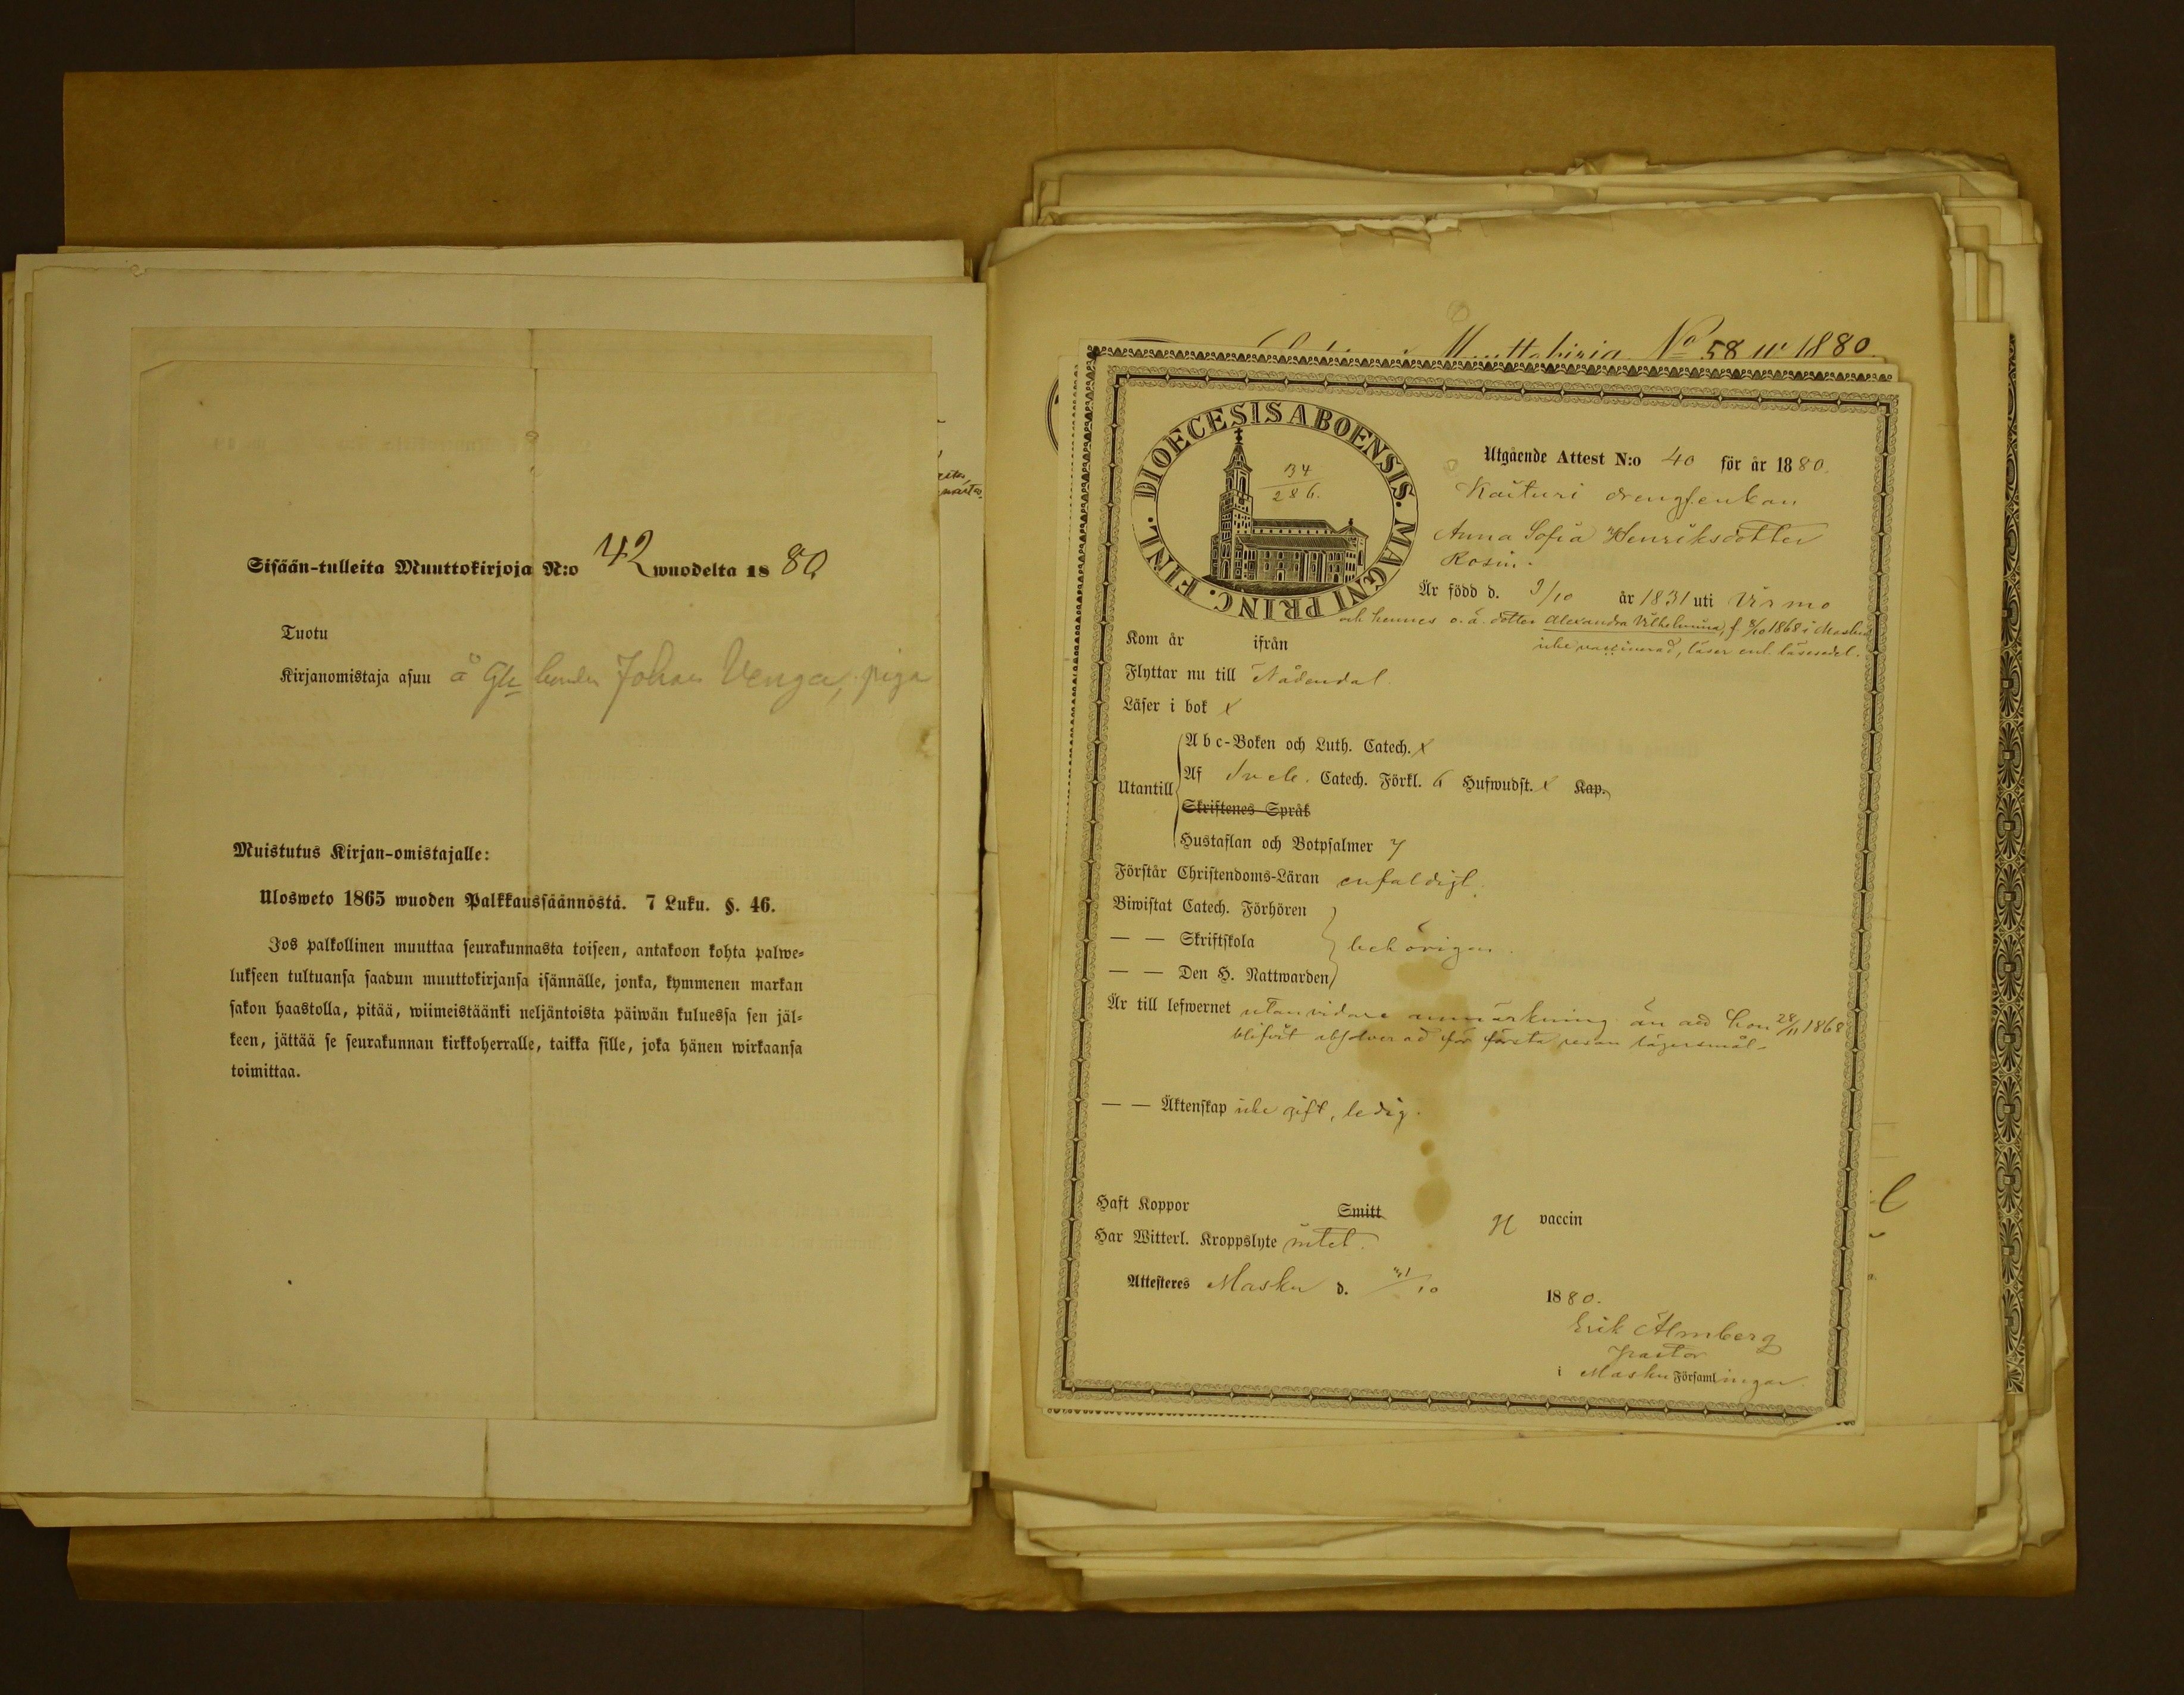 Sisään-tulleita Muuttokirjoja N:o 42 wuodelta 1880
Tuotu
Kirjanomistaja asuu å Gk Johan Venga, piga
Muistutus Kirjan-omistajalle:
Ulosweto 1865 wuoden Palkkaussäännöstä. 7 Luku. §. 46.
Jos palkollinen muuttaa seurakunnasta toiseen, antakoon kohta palwe-
lukseen tultuansa saadun muuttokirjansa isännälle, jonka, kymmenen markan
sakon haastolla, pitää, wiimeistäänki neljäntoista päiwän kuluessa sen jäl-
keen, jättää se seurakunnan kirkkoherralle, taikka sille, joka hänen wirkaansa
toimittaa.
Muuttokirja No 58 w 1880.
DIOECESIS ABOENSIS. MAGNI PRINC. FINL.
134
286.
Utgående Attest N:o 40 för år 1880.
Kaituri drengsenkan
Anna Sofia Henriksdotter
Rosin.
Är född d. 9/10 år 1831 uti Virmo
och hennes o. ä. dotter Alexandra Vilhelmina, f 8/10 1868 i Masku
icke vaccinerad, läser enl. läsesedel.
Kom år ifrån
Flyttar nu till Nådendal.
Läser i bok x
Utantill
Abc-Boken och Luth. Catech. x
Af Sveb. Catech. Förkl. 6 Hufwudst. x Kap.
Skriftenes Språk
Hustaflan och Botpsalmer 7
Förstår Christendoms-Läran enfaldigt.
Biwistat Catech. Förhören
— — Skriftskola behörigen.
— — Den H. Nattwarden
Är till lefwernet utan vidare anmärkning än att hon 28/11 1868
blifvit absolverad för första resan lägersmål.
— — Äktenskap icke gift, ledig.
Haft Koppor Smitt vaccin
Har Witterl. Kroppslyte intet.
Attesteres Masku d. 31/10 1880.
Erik Almberg
Pastor
i Masku Församlingar